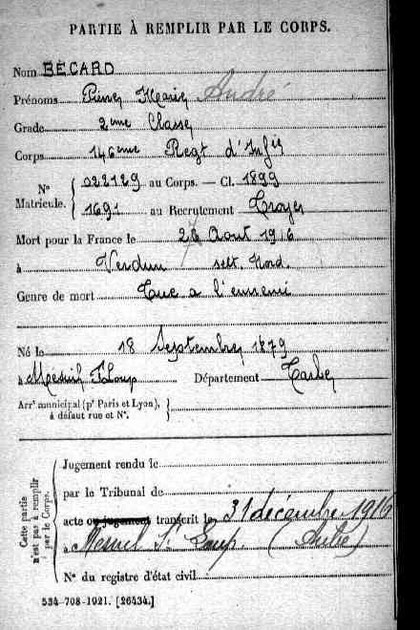 PARTIE À REMPLIR PAR LE CORPS.
Nom BÉCARD
Prénoms Pierre Marie André
Grade 2eme Classe
Corps 146eme Regt d'Infie
022129 au Corps. — Cl. 1899
N° Matricule.
1691 au Recrutement Troyes
Mort pour la France le 26 Aout 1916
à Verdun sect. Nord.
Genre de mort Tué a l'ennemi
Né le 18 Septembre 1879
à Mesnil St Loup Département
Arrt municipal (pr Paris et Lyon), à défaut rue et N°.
Cette partie n'est pas à remplir par le Corps.
Jugement rendu le
par le Tribunal de
acte ou jugement transcrit le 31 décembre 1916
à Mesnil St Loup (Aube)
N° du registre d'état civil
534-708-1921. [26434.]